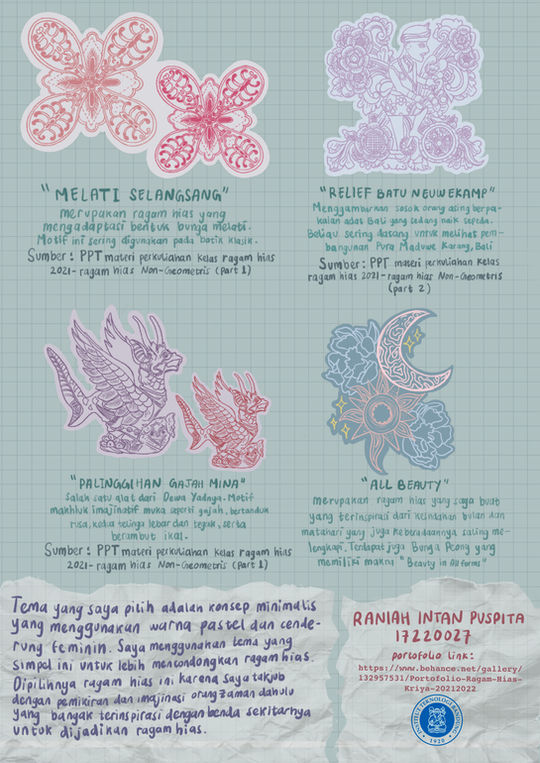 "MELATI SELANGSANG"
merupakan ragam hias yang
mengadaptasi bentuk bunga melati.
Motif ini sering digunakan pada batik klasik.
Sumber: PPT materi perkuliahan kelas ragam hias
2021-ragam hias Non-Geometris (Part 1)
"RELIEF BATU NEUWEKAMP"
Menggambarkan sosok orang asing berpa-
kaian adat Bali yang sedang naik sepeda.
Beliau sering datang untuk melihat pem-
bangunan Pura Maduwe Karang, Bali
Sumber: PPT materi perkuliahan kelas
ragam hias 2021-ragam hias Non-Geometris
(part 2)
"PALINGGIHAN GAJAH MINA"
Salah satu alat dari Dewa Yadnya. Motif
makhluk imajinatif muka seperti gajah, bertanduk
rusa, kedua telinga lebar dan tegak, serta
berambut ikal.
Sumber: PPT materi perkuliahan kelas ragam hias
2021-ragam hias Non-Geometris (Part 1)
"ALL BEAUTY"
merupakan ragam hias yang saya buat
yang terinspirasi dari keindahan bulan dan
matahari yang juga keberadaannya saling me-
lengkapi. Terdapat juga Bunga Peony yang
memiliki makna "Beauty in All forms"
Tema yang saya pilih adalah konsep minimalis
yang menggunakan warna pastel dan cende-
rung feminin. Saya menggunakan tema yang
simpel ini untuk lebih mencondongkan ragam hias.
Dipilihnya ragam hias ini karena saya takjub
dengan pemikiran dan imajinasi orang zaman dahulu
yang banyak terinspirasi dengan benda sekitarnya
untuk dijadikan ragam hias.
RANIAH INTAN PUSPITA
17220027
portofolio link:
https://www.behance.net/gallery/
132957531/Portofolio-Ragam-Hias-
Kriya-20212022
INSTITUT TEKNOLOGI BANDUNG
1920